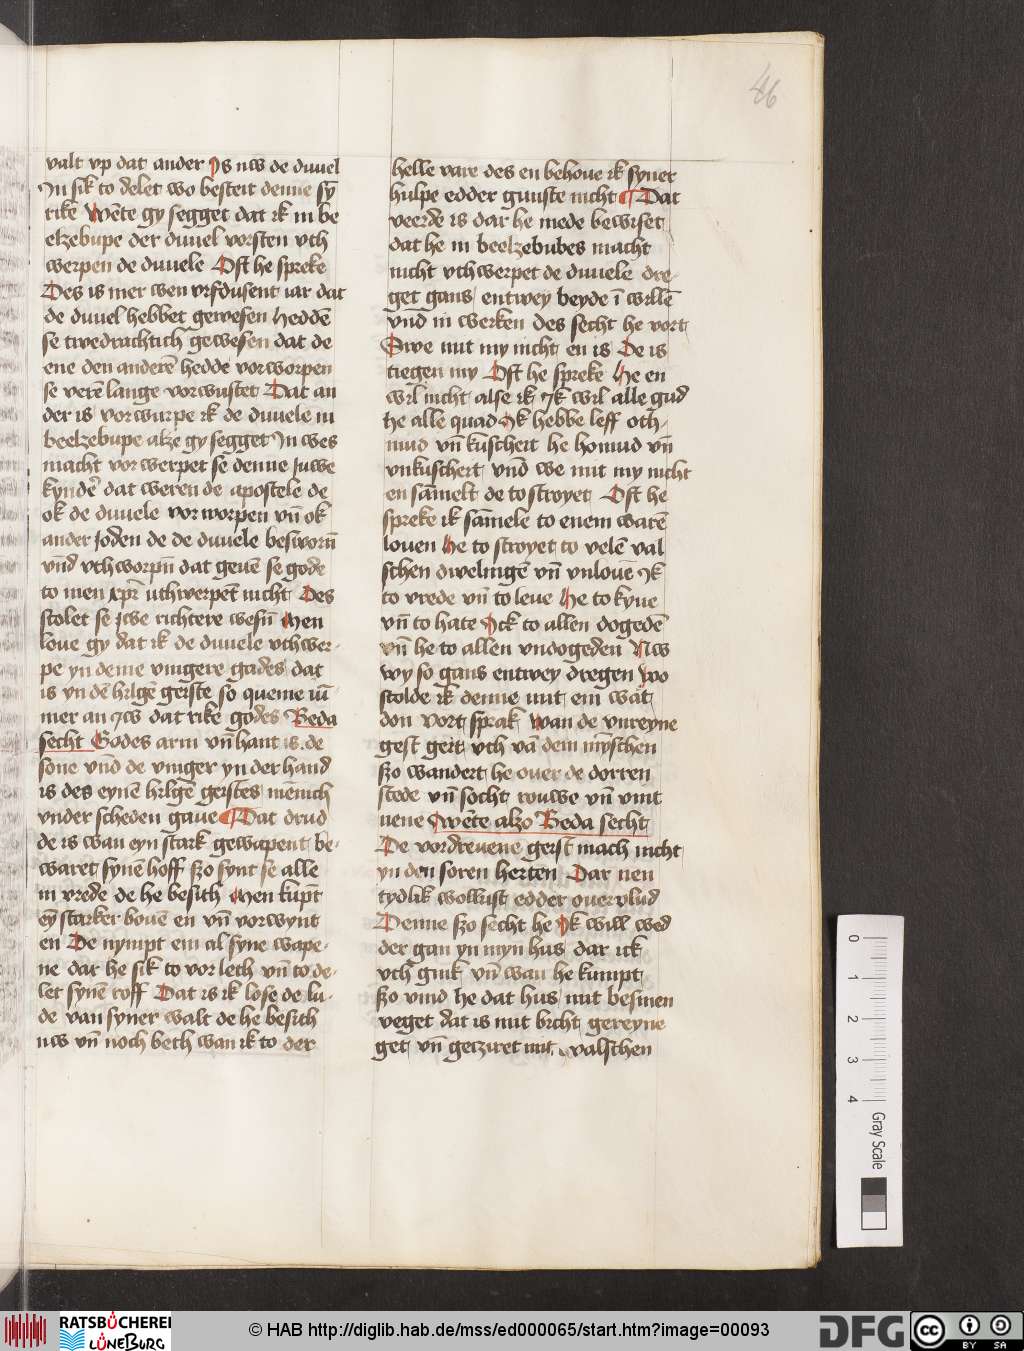 46
valt vp dat ander Is nw de duuel
In sik to delet wo besteit denne sy̅
rike We̅te gy segget dat ik in be
elzebupe der duuel vorsten vth
werpen de duuele Oft he spreke
Des is mer wen vifdusent iar dat
de duuel hebbet gewesen Hedde̅
se twedrachtich gewesen dat de
ene den andere̅ hedde vorworpen
se vere̅ lange vorwustet Dat an
der is vorwurpe ik de duuele in
beelzebupe alze gy segget In wes
macht vorwerpet se denne Juwe
kynder dat weren de apostele de
ok de duuele vorworpen vn̅ ok
ander Joden de de duuele beswor̅n
vn̅d vthworpn̅ dat geue̅ se gode
to men xpr̅ uthwerpe̅t nicht Des
scolet se jwe richtere wesn̅ Men
loue gy dat ik de duuele vthwer-
pe yn deme vingere gades dat
is yn de̅ hilge̅ geiste so queme iu̅-
mer an Jw dat rike godes Beda
secht Godes arm vn̅ hant is de
sone vn̅d de vinger yn der hand
is des eyne̅ hilge̅ geistes me̅nich
vnder scheden gaue Dat drud
de is wan eyn stark gewapent be-
waret syne̅ hoff szo synt se alle
in vrede de he besith Men ku̅pt
ey̅ starker boue̅ en vn̅ vorwynt
en De nympt em al syne wape-
ne dar he sik to vor leth vn̅ to de-
let syne̅ roff Dat is ik lose de lu-
de van syner walt de he besith
nw vn̅ noch beth wan ik to der
helle vare des en behoue ik syner
hulpe edder gunste nicht Dat
veerde is dar he mede bewiset
dat he in beelzebubes macht
nicht vthwerpet de duuele dre-
get gans entwey beyde i̅ wille̅
vn̅d in werken des secht he vort
Swe mit my nicht en is De is
tiegen my Oft he spreke He en
wil nicht alse ik Jk wil alle gud
he alle quad Jk hebbe leff oth-
mud vn̅ kuscheit he homud vn̅
vnkuscheit vn̅d we mit my nicht
en sa̅melt de to stroyet Oft he
spreke ik sa̅mele to enem ware̅
louen He to stroyet to vele̅ val
schen dwelinge̅ vn̅ vnloue̅ Jk
to vrede vn̅ to leue He to kyue
vn̅ to hate Ick to allen dogede̅
vn̅ he to allen vndogeden Nw
wy so gans entwey dregen Wo
scolde ik denne mit em wat
don Vort sprak Wan de vnreyne
gest geit vth va̅ dem my̅schen
szo wandert he ouer de dorren
stede vn̅ socht rouwe vn̅ vint
nene We̅te alzo Beda secht
De vordreuene geist mach nicht
yn den soren herten Dar nen
tydlik wollust edder ouervlud
Denne szo secht he Jk will wed
der gan yn myn hus dar ick
vth gink vn̅ wan he kumpt
szo vind he dat hus mit besmen
veget dat is mit bicht gereyne
get vn̅ gecziret mit valschen
0 1 2 3 4
Gray Scale
RATSBÜCHEREI
LÜNEBURG
© HAB http://diglib.hab.de/mss/ed000065/start.htm?image=00093
DFG
cc BY SA